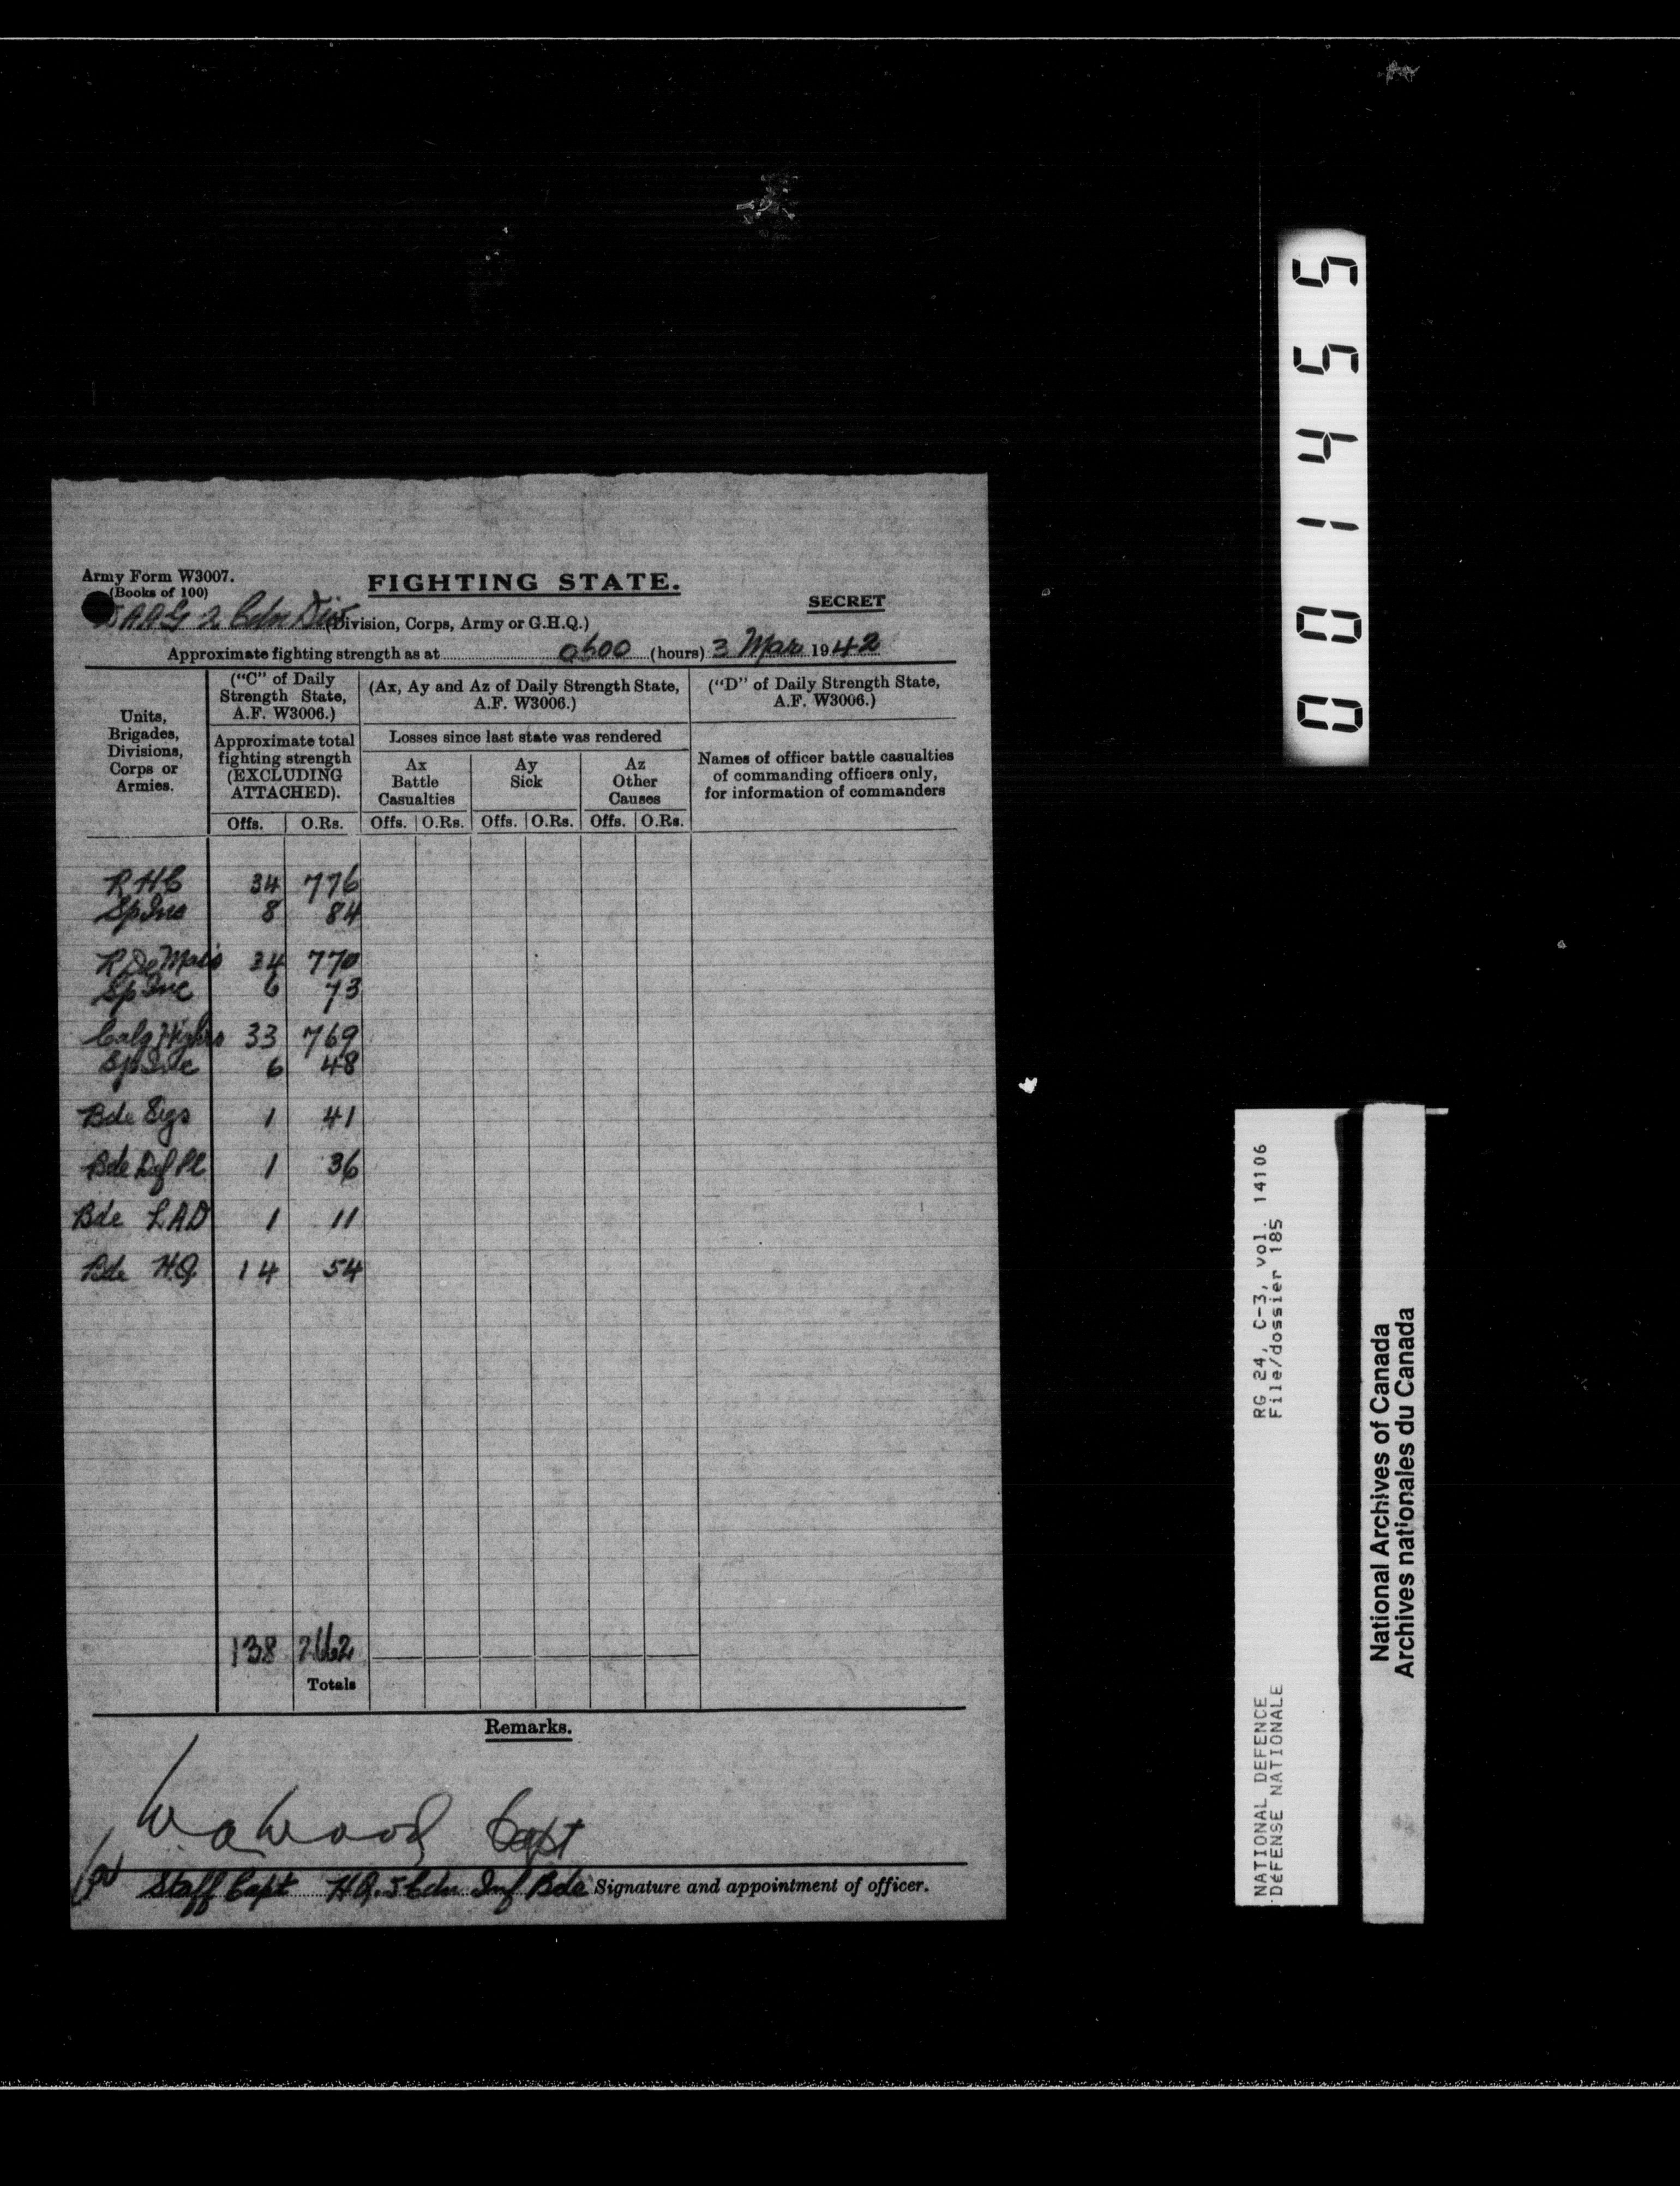 Army Form W3007.
(Books of 100)
FIGHTING STATE.
SECRET
DAAG 2 Cdn Div (Division, Corps, Army or G.H.Q.)
Approximate fighting strength as at 0600 (hours) 3 Mar 1942
Units, Brigades, Divisions, Corps or Armies.
("C" of Daily Strength State, A.F. W3006.)
Approximate total fighting strength (EXCLUDING ATTACHED).
(Ax, Ay and Az of Daily Strength State, A.F. W3006.)
Losses since last state was rendered
Ax Battle Casualties
Ay Sick
Az Other Causes
("D" of Daily Strength State, A.F. W3006.)
Names of officer battle casualties of commanding officers only, for information of commanders
Offs. O.Rs. Offs. O.Rs. Offs. O.Rs. Offs. O.Rs.
RHC 34 776
Sp Inc 8 84
R De Mais 34 770
Sp Inc 6 73
Calg Highrs 33 769
Sp Inc 6 48
Bde Sigs 1 41
Bde Def Pl 1 36
Bde LAD 1 11
Bde H.Q. 14 54
138 2662
Totals
Remarks.
WaWood Capt
for Staff Capt HQ. 5 Cdn Inf Bde Signature and appointment of officer.
001455
RG 24, C-3, vol. 14106
File/dossier 185
NATIONAL DEFENCE
DÉFENSE NATIONALE
National Archives of Canada
Archives nationales du Canada